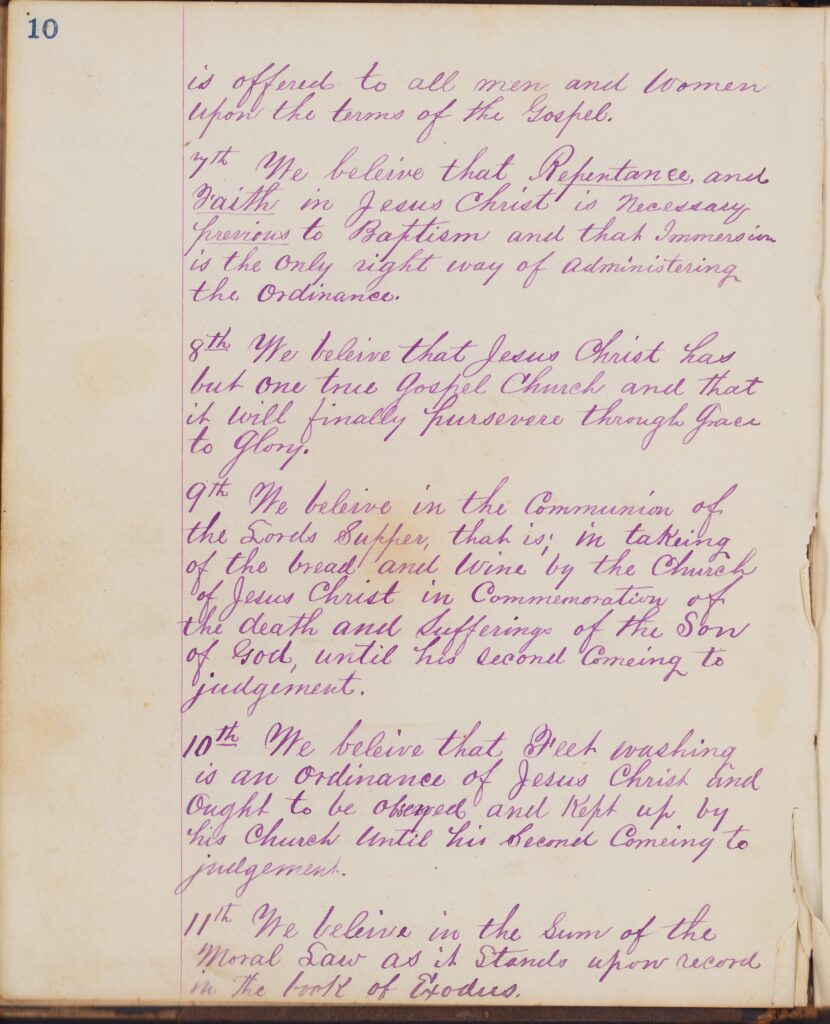 10
is offered to all men and Women
upon the terms of the Gospel.
7th We beleive that Repentance, and
Faith in Jesus Christ is Necessary
previous to Baptism and that Immersion
is the Only right way of Administering
the Ordinance.
8th We beleive that Jesus Christ has
but one true Gospel Church and that
it will finally pursevere through Grace
to Glory.
9th We beleive in the Communion of
the Lords Supper, that is; in takeing
of the bread and Wine by the Church
of Jesus Christ in Commemoration of
the death and Sufferings of the Son
of God, until his second Comeing to
judgement.
10th We beleive that Feet washing
is an Ordinance of Jesus Christ and
Ought to be and Kept up by
his Church Until his Second Comeing to
judgement.
11th We beleive in the Sum of the
Moral Law as it Stands upon record
in the book of Exodus.